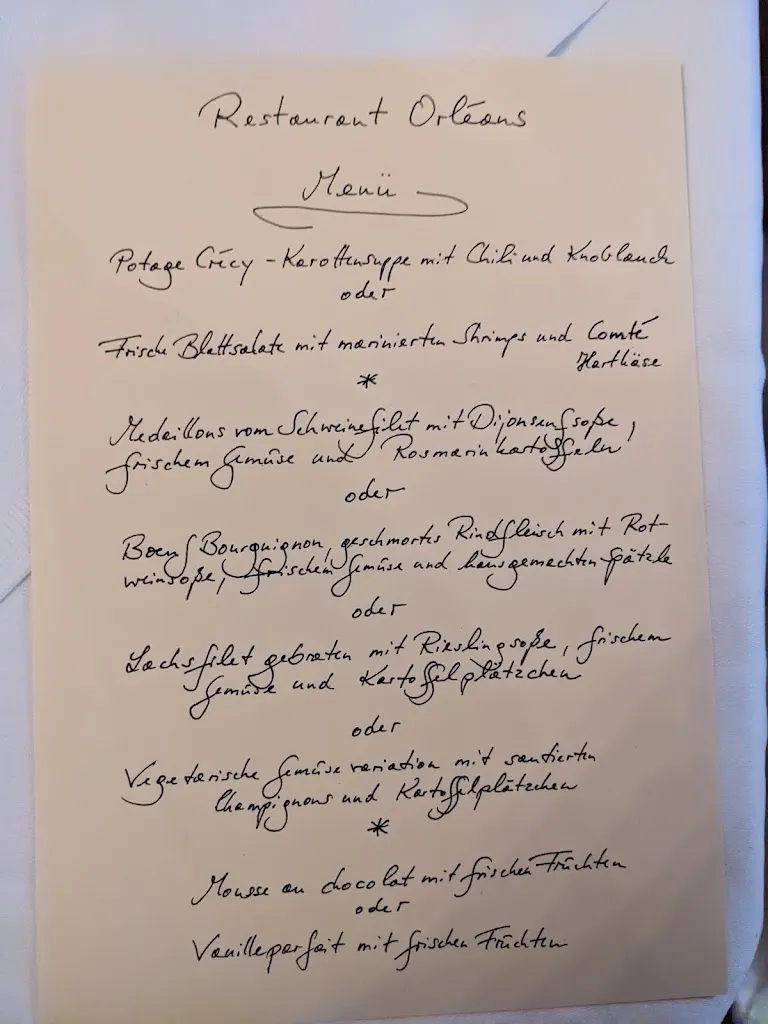 Restaurant Orléans
Menü
Potage Crécy - Karottensuppe mit Chili und Knoblauch
oder
Frische Blattsalate mit marinierten Shrimps und Comté
Hartkäse
*
Medaillons vom Schweinefilet mit Dijonsenfsoße,
frischem Gemüse und Rosmarinkartoffeln
oder
Boeuf Bourguignon, geschmortes Rindfleisch mit Rot-
weinsoße, frischem Gemüse und hausgemachten Spätzle
oder
Lachsfilet gebraten mit Rieslingsoße, frischem
Gemüse und Kartoffelplätzchen
oder
Vegetarische Gemüsevariation mit sautierten
Champignons und Kartoffelplätzchen
*
Mousse au chocolat mit frischen Früchten
oder
Vanilleparfait mit frischen Früchten